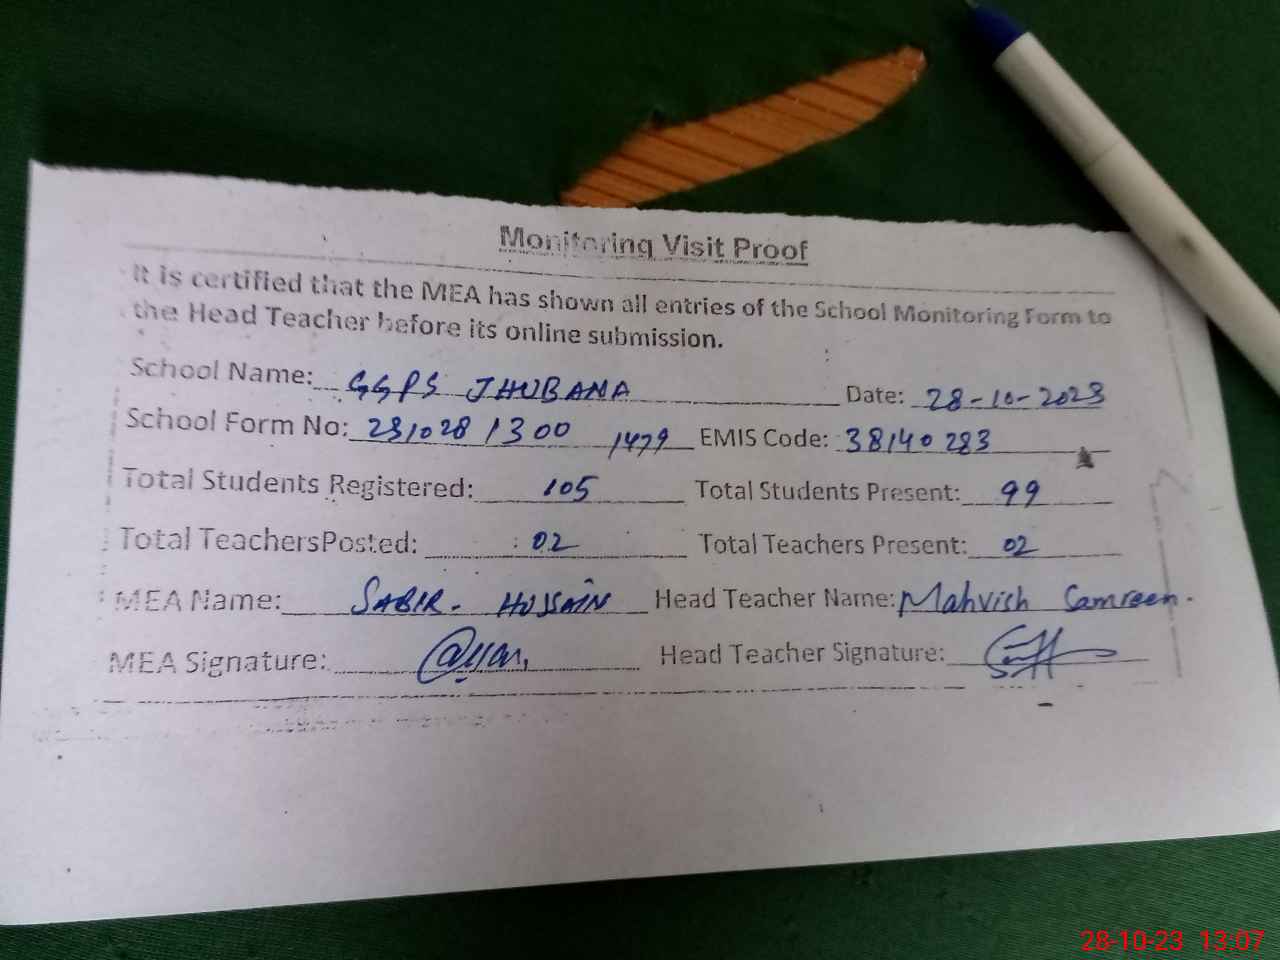 Monitoring Visit Proof
It is certified that the MEA has shown all entries of the School Monitoring Form to
the Head Teacher before its online submission.
School Name: GGPS JHUBANA Date: 28-10-2023
School Form No: 231028 1300 1479 EMIS Code: 38140283
Total Students Registered: 105 Total Students Present: 99
Total TeachersPosted: 02 Total Teachers Present: 02
MEA Name: SABIR. HUSSAIN Head Teacher Name: Mahvish Samreen.
MEA Signature: Head Teacher Signature:
28-10-23 13:07